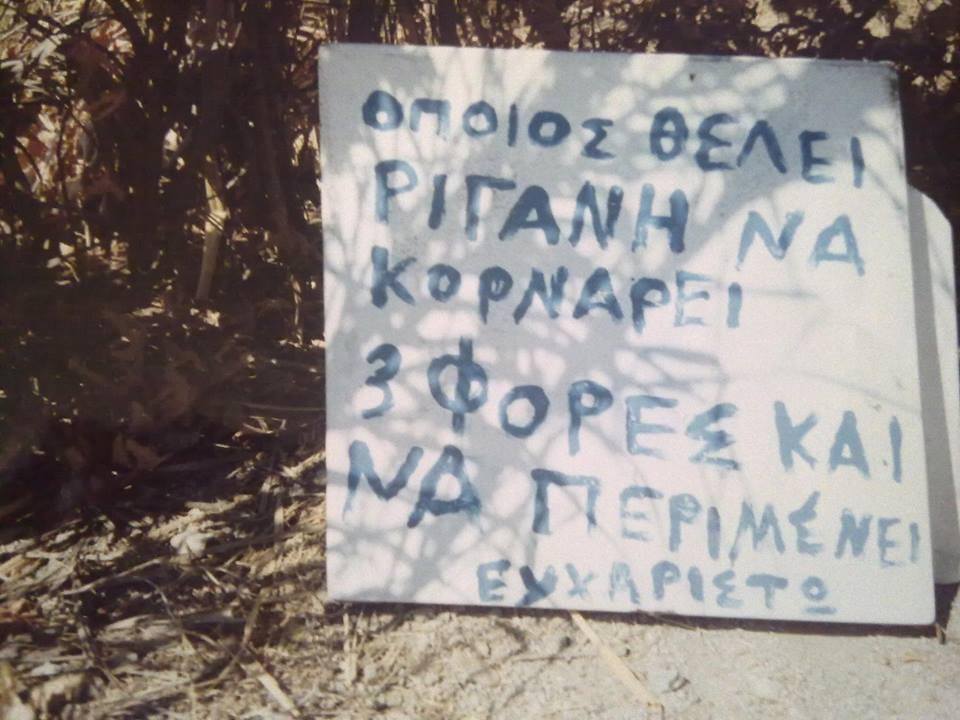 ΟΠΟΙΟΣ ΘΕΛΕΙ
ΡΙΓΑΝΗ ΝΑ
ΚΟΡΝΑΡΕΙ
3 ΦΟΡΕΣ ΚΑΙ
ΝΑ ΠΕΡΙΜΕΝΕΙ
ΕΥΧΑΡΙΣΤΩ